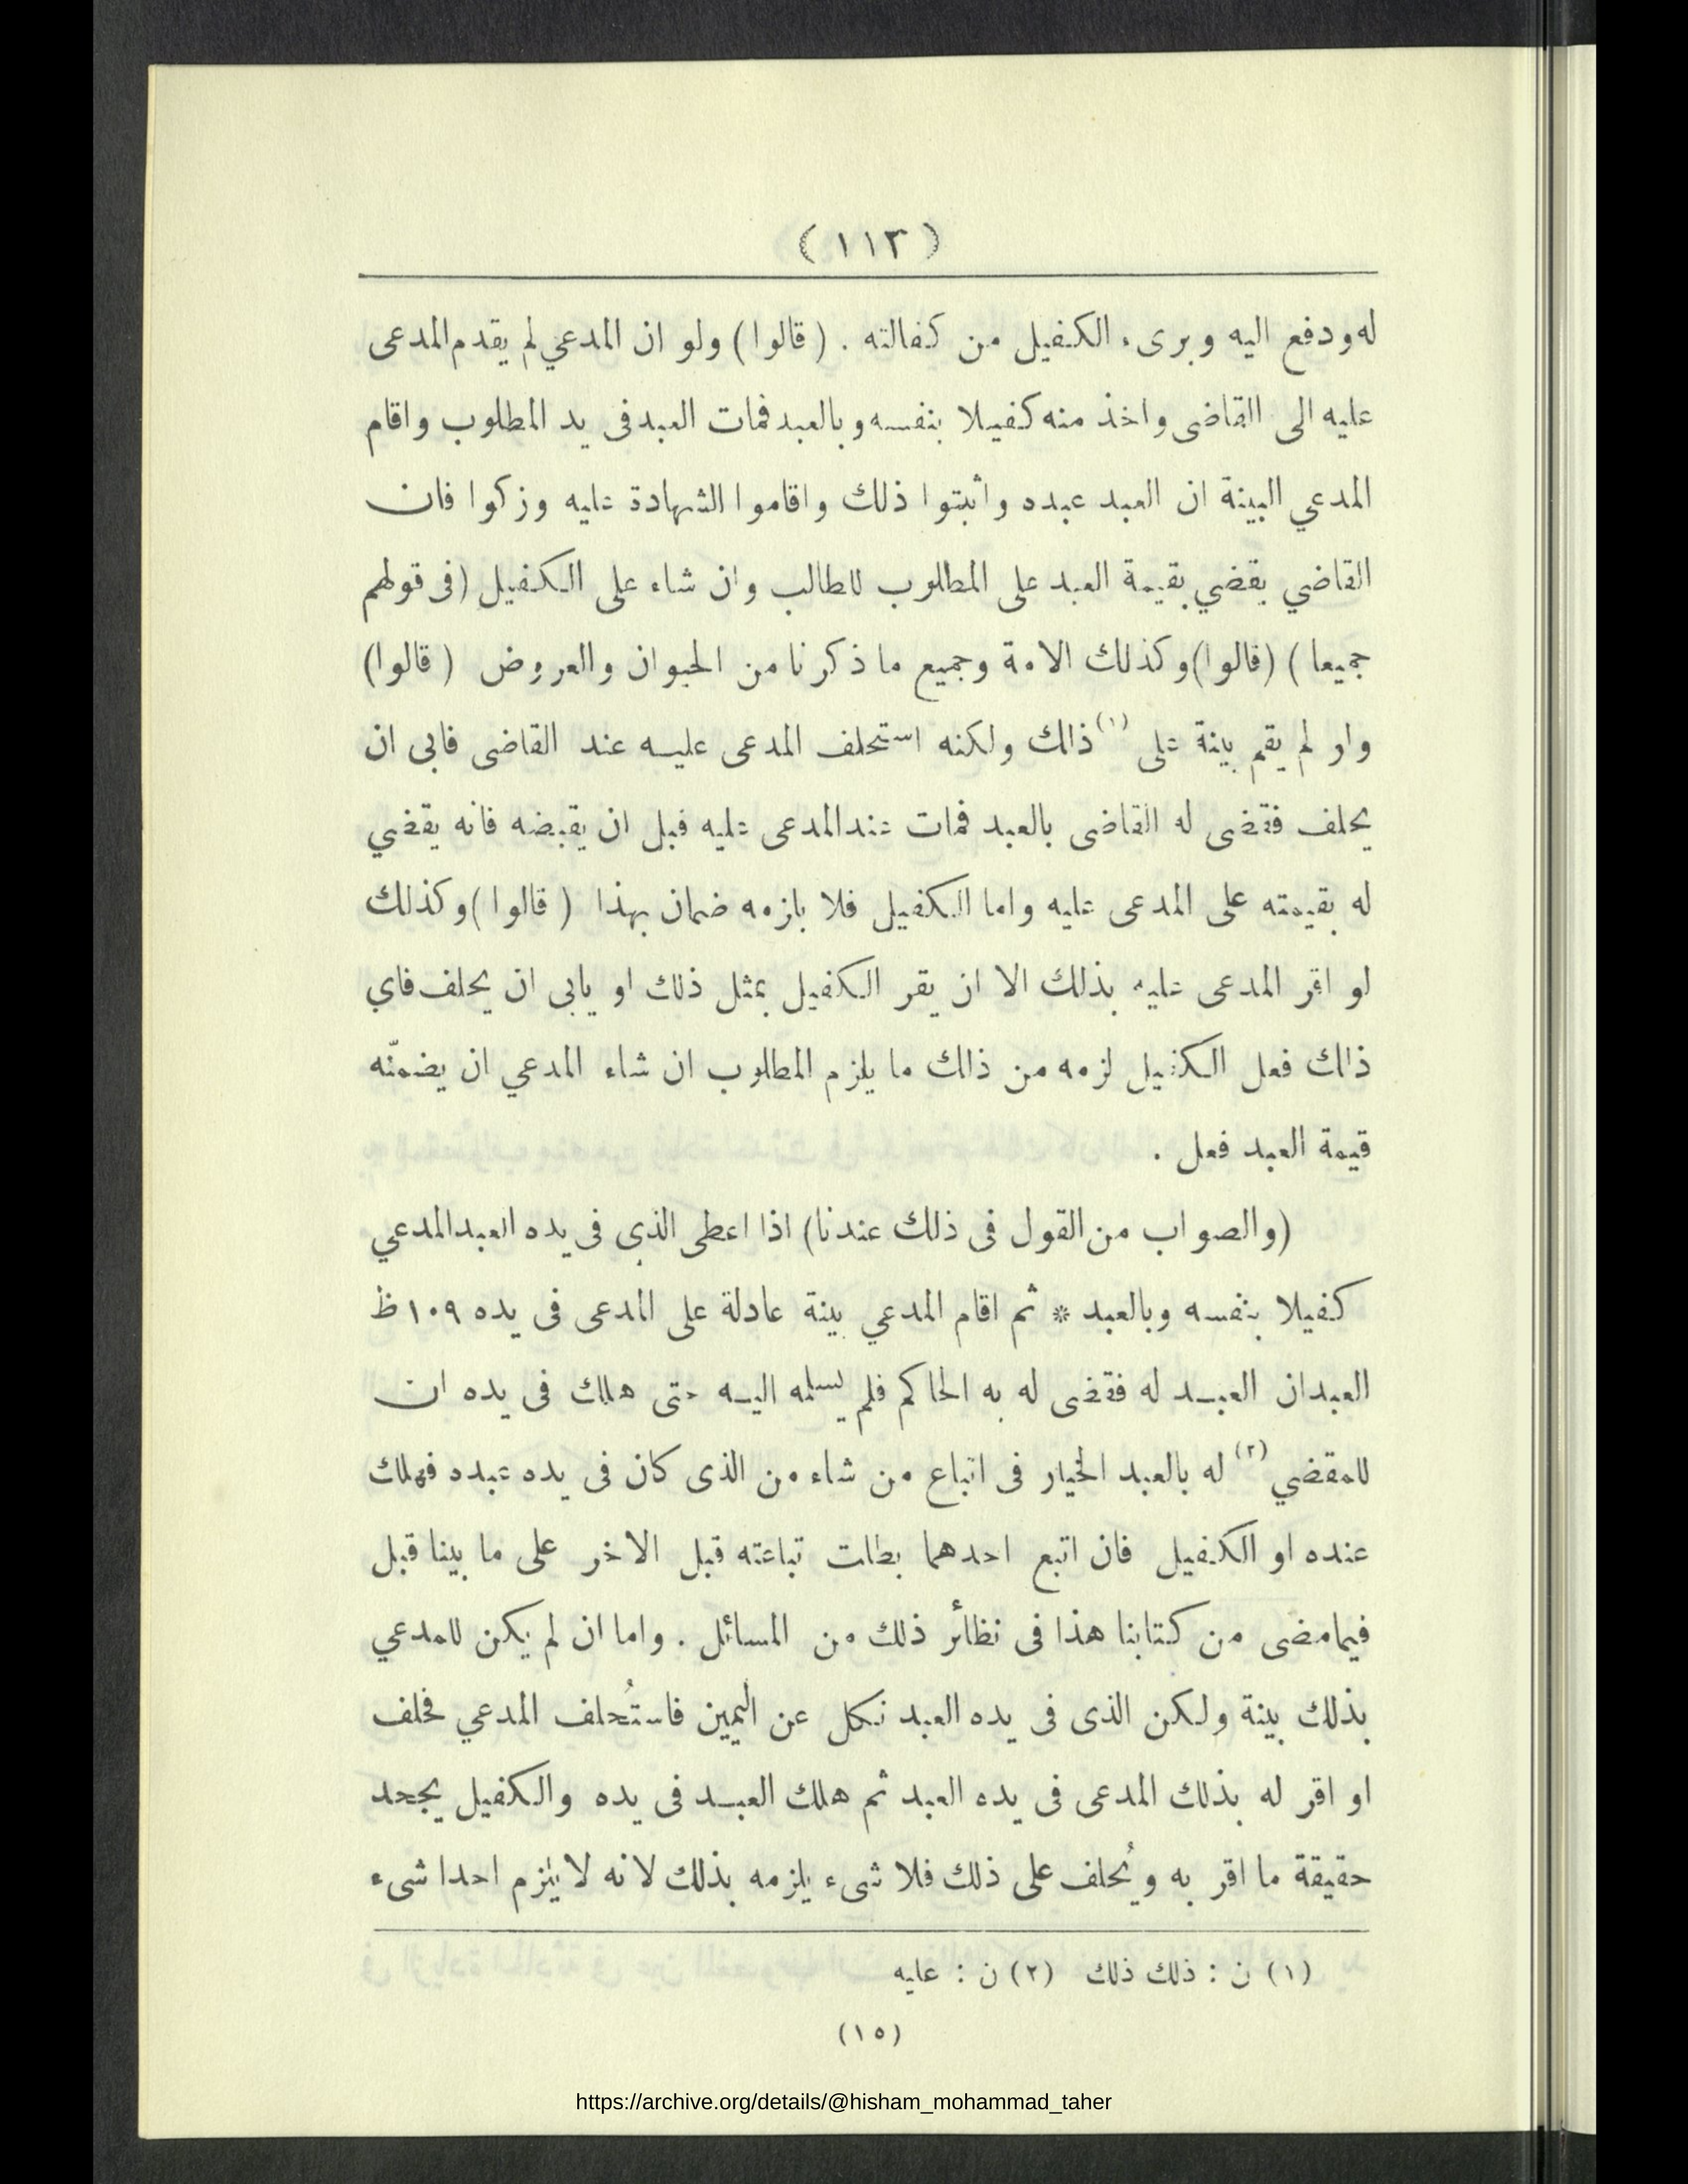 (١١٣)
له ودفع اليه وبرىء الكفيل من كفالته . (قالوا) ولو ان المدعي لم يقدم المدعى
عليه الى القاضى واخذ منه كفيلا بنفسه وبالعبد فمات العبد فى يد المطلوب واقام
المدعي البينة ان العبد عبده واثبتوا ذلك واقاموا الشهادة عليه وزكوا فان
القاضي يقضي بقيمة العبد على المطلوب للطالب وان شاء على الكفيل (فى قولهم
جميعا) (قالوا) وكذلك الامة وجميع ما ذكرنا من الحيوان والعروض (قالوا)
ولو لم يقم بينة على (١) ذلك ولكنه استحلف المدعى عليه عند القاضى فابى ان
يحلف فقضى له القاضى بالعبد فمات عند المدعى عليه قبل ان يقبضه فانه يقضي
له بقيمته على المدعى عليه واما الكفيل فلا يلزمه ضمان بهذا (قالوا) وكذلك
لو اقر المدعى عليه بذلك الا ان يقر الكفيل بمثل ذلك او يابى ان يحلف فاي
ذلك فعل الكفيل لزمه من ذلك ما يلزم المطلوب ان شاء المدعي ان يضمنّه
قيمة العبد فعل .
(والصواب من القول فى ذلك عندنا) اذا اعطى الذى فى يده العبد المدعي
كفيلا بنفسه وبالعبد * ثم اقام المدعي بينة عادلة على المدعى فى يده ١٠٩ ظ
العبد ان العبد له فقضى له به الحاكم فلم يسلمه اليه حتى هلك فى يده ان
للمقضي (٢) له بالعبد الخيار فى اتباع من شاء من الذى كان فى يده عبده فهلك
عنده او الكفيل فان اتبع احدهما بطلت تباعته قبل الاخر على ما بينا قبل
فيما مضى من كتابنا هذا فى نظائر ذلك من المسائل . واما ان لم يكن للمدعي
بذلك بينة ولكن الذى فى يده العبد نكل عن اليمين فاستُحلف المدعي فحلف
او اقر له بذلك المدعى فى يده العبد ثم هلك العبد فى يده والكفيل يجحد
حقيقة ما اقر به ويُحلف على ذلك فلا شىء يلزمه بذلك لانه لا يلزم احدا شىء
(١) ن : ذلك ذلك (٢) ن : عليه
(١٥)
https://archive.org/details/@hisham_mohammad_taher